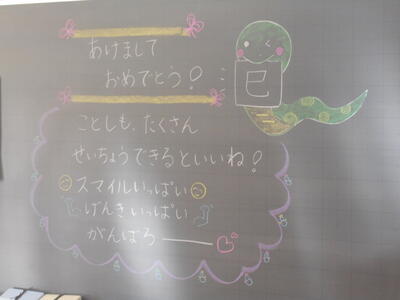 あけまして
おめでとう!
巳
ことしも、たくさん
せいちょうできるといいね!
スマイルいっぱい
げんきいっぱい
がんばろーーー